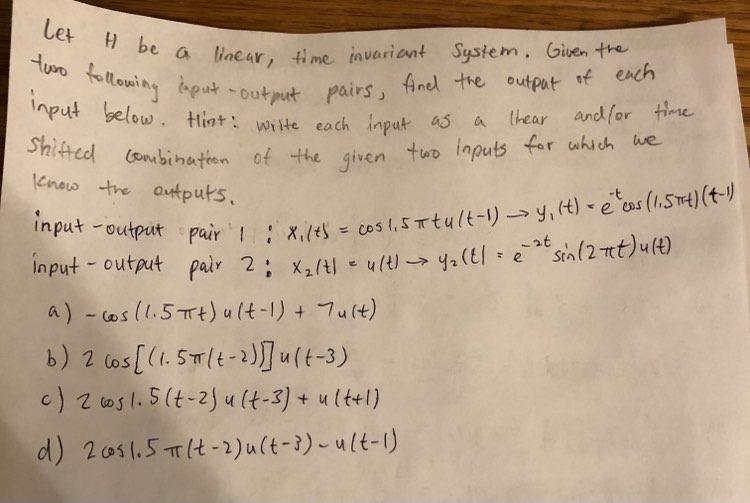 Let H be a linear, time invariant system. Given the
two following input-output pairs, find the output of each
input below. Hint: write each input as a linear and/or time
shifted combination of the given two inputs for which we
know the outputs.
input-output pair 1 : x₁(t) = cos 1.5πt u(t-1) → y₁(t) = e^-t cos(1.5πt)(t-1)
input-output pair 2 : x₂(t) = u(t) → y₂(t) = e^-2t sin(2πt)u(t)
a) -cos(1.5πt)u(t-1) + 7u(t)
b) 2 cos[(1.5π(t-2))]u(t-3)
c) 2 cos 1.5(t-2)u(t-3) + u(t+1)
d) 2cos 1.5π(t-2)u(t-3) - u(t-1)